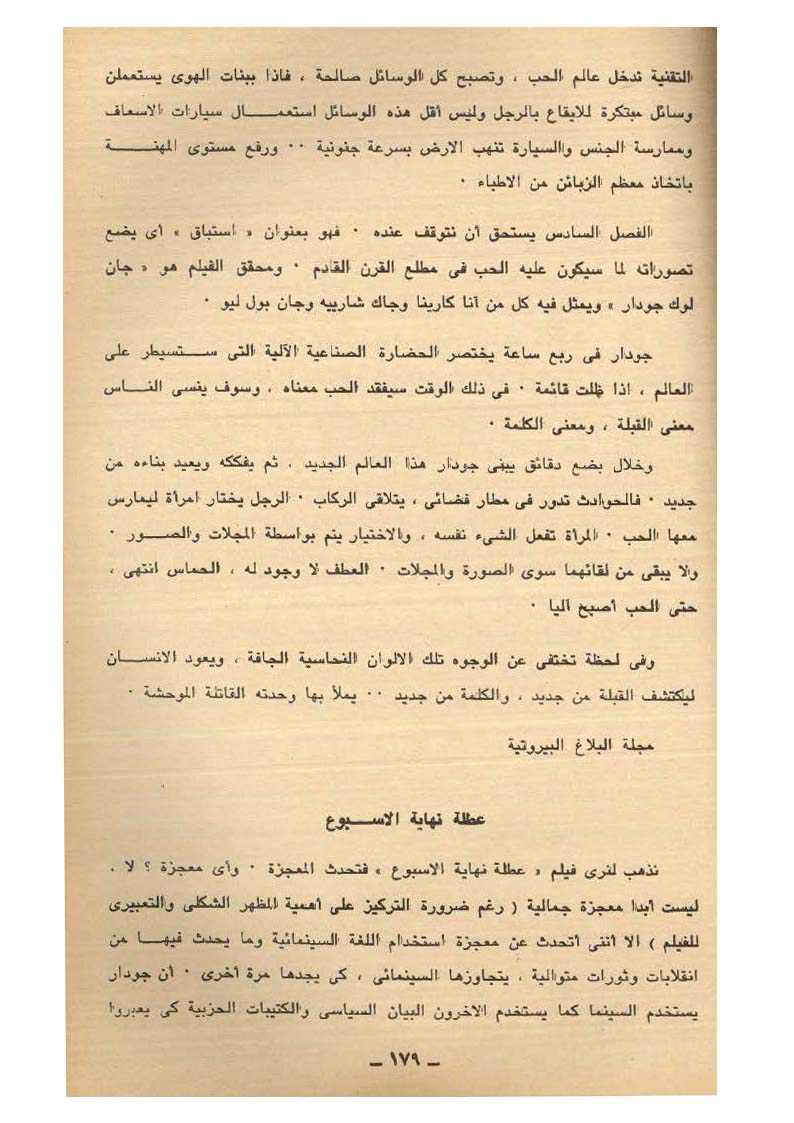 التقنية تدخل عالم الحب ، وتصبح كل الوسائل صالحة ، فاذا ببنات الهوى يستعملن
وسائل مبتكرة للايقاع بالرجل وليس أقل هذه الوسائل استعمـــال سيارات الاسعاف
وممارسة الجنس والسيارة تنهب الارض بسرعة جنونية ٠٠ ورفع مستوى المهنـــة
باتخاذ معظم الزبائن من الاطباء ٠
الفصل السادس يستحق أن نتوقف عنده ٠ فهو بعنوان « استباق » أى يضع
تصوراته لما سيكون عليه الحب فى مطلع القرن القادم ٠ ومحقق الفيلم هو « جان
لوك جودار » ويمثل فيه كل من أنا كارينا وجاك شارييه وجان بول ليو ٠
جودار فى ربع ساعة يختصر الحضارة الصناعية الآلية التى ســتسيطر على
العالم ، اذا ظلت قائمة ٠ فى ذلك الوقت سيفقد الحب معناه ، وسوف ينسى النـــاس
معنى القبلة ، ومعنى الكلمة ٠
وخلال بضع دقائق يبنى جودار هذا العالم الجديد ، ثم يفككه ويعيد بناءه من
جديد ٠ فالحوادث تدور فى مطار فضائى ، يتلاقى الركاب ٠ الرجل يختار امرأة ليمارس
معها الحب ٠ المرأة تفعل الشىء نفسه ، والاختيار يتم بواسطة المجلات والصــور ٠
ولا يبقى من لقائهما سوى الصورة والمجلات ٠ العطف لا وجود له ، الحماس انتهى ،
حتى الحب أصبح آليا ٠
وفى لحظة تختفى عن الوجوه تلك الالوان النحاسية الجافة ، ويعود الانســان
ليكتشف القبلة من جديد ، والكلمة من جديد ٠٠ يملأ بها وحدته القاتلة الموحشة ٠
مجلة البلاغ البيروتية
عطلة نهاية الاســبوع
نذهب لنرى فيلم « عطلة نهاية الاسبوع » فتحدث المعجزة ٠ وأى معجزة ؟ لا ،
ليست أبدا معجزة جمالية ( رغم ضرورة التركيز على أهمية المظهر الشكلى والتعبيرى
للفيلم ) الا أننى أتحدث عن معجزة استخدام اللغة السينمائية وما يحدث فيهــا من
انقلابات وثورات متوالية ، يتجاوزها السينمائى ، كى يجدها مرة أخرى ٠ أن جودار
يستخدم السينما كما يستخدم الاخرون البيان السياسى والكتيبات الحزبية كى يعبروا
ــ ١٧٩ ــ